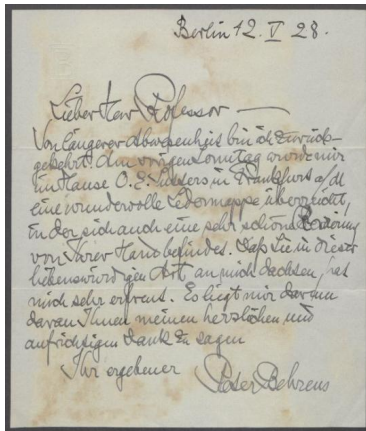 Berlin 12. V 28.
Lieber Herr Professor —
Von längerer Abwesenheit bin ich zurück-
gekehrt. Am vorigen Sonntag wurde mir
im Hause O. E. in Frankfurt a/M
eine wundervolle Ledermappe überreicht,
in der sich auch eine sehr schöne Radierung
von Ihrer Hand befindet. Daß Sie in dieser
liebenswürdigen Art an mich dachten, hat
mich sehr erfreut. Es liegt mir darum
daran Ihnen meinen herzlichen und
aufrichtigen Dank zu sagen
Ihr ergebener Peter Behrens